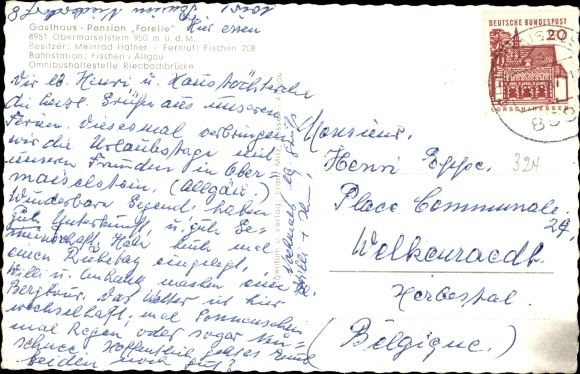 Hier essen
Gasthaus - Pension "Forelle"
8981 Obermaiselstein 950 m ü. d. M.
Besitzer: Meinrad Hafner - Fernruf: Fischen 208
Bahnstation: Fischen / Allgäu
Omnibushaltestelle Riedbachbrücke
Ihr lb. Henri u.
die herzl. Grüße aus unseren
Ferien. Diesesmal verbringen
wir die Urlaubstage mit
unseren Freunden in Ober-
maiselstein. (Allgäu.)
Wunderbare Gegend haben
gute Unterkunft, u. gute Ge-
meinschaft. Habe heute mal
einen Ruhetag eingelegt,
Willi u. Anhang machen eine
Bergtour. Das Wetter ist hier
wechselhaft, mal Sonnenschein
mal Regen oder sogar
Hoffentlich geht es Euch
beiden noch gut?
DEUTSCHE BUNDESPOST
20
LORSCH/HESSEN
324
Monsieur.
Henri Eppe.
Place Communale
24,
Welkenraedt.
Herbestal.
(Belgique.)